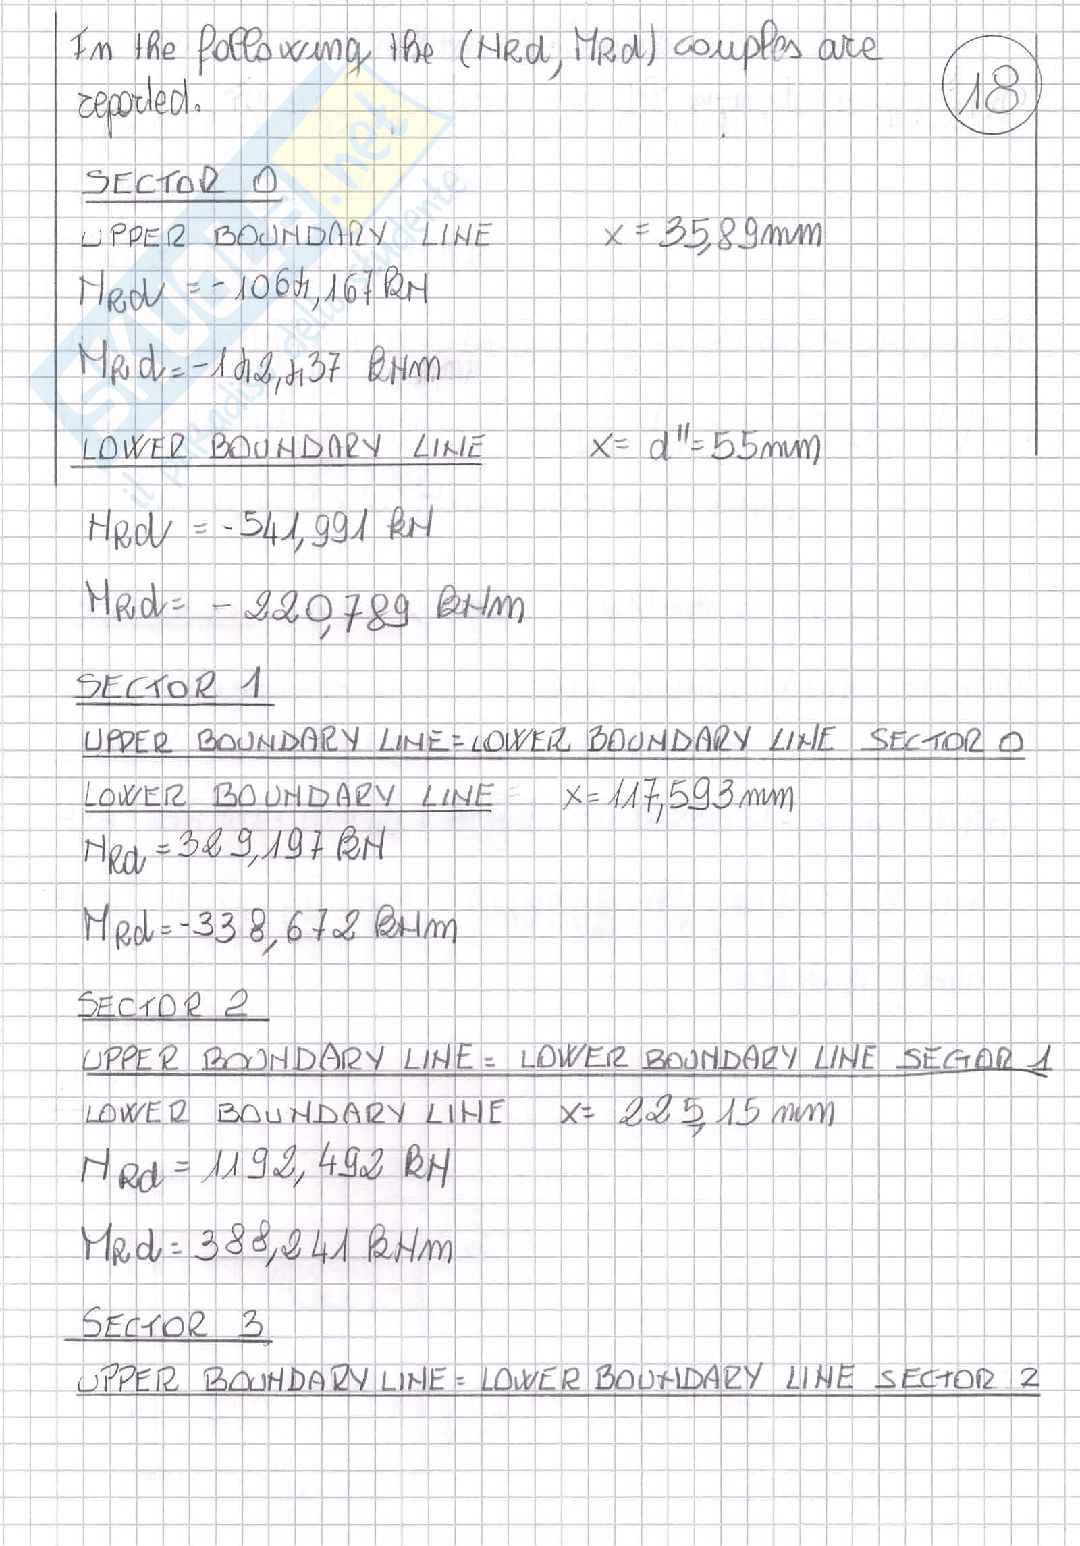 In the following the (NRd, MRd) couples are
reported.
18
SECTOR 0
UPPER BOUNDARY LINE x = 35,89mm
NRd = -1064,167 kN
MRd = -142,437 kNm
LOWER BOUNDARY LINE x = d" = 55mm
NRd = -541,991 kN
MRd = - 220,789 kNm
SECTOR 1
UPPER BOUNDARY LINE = LOWER BOUNDARY LINE SECTOR 0
LOWER BOUNDARY LINE x = 117,593 mm
NRd = 329,197 kN
MRd = -338,672 kNm
SECTOR 2
UPPER BOUNDARY LINE = LOWER BOUNDARY LINE SECTOR 1
LOWER BOUNDARY LINE x = 225,15 mm
NRd = 1192,492 kN
MRd = 388,241 kNm
SECTOR 3
UPPER BOUNDARY LINE = LOWER BOUNDARY LINE SECTOR 2
SKUOLA.net
il paradiso dello studente